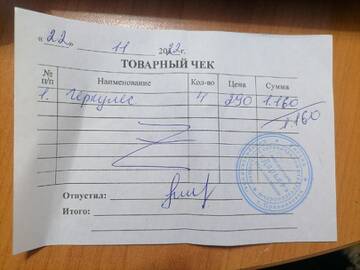 «22» 11 2022г.
ТОВАРНЫЙ ЧЕК
№ п/п Наименование Кол-во Цена Сумма
1. Геркулес 4 290 1.160
1.160
Отпустил:
Итого: